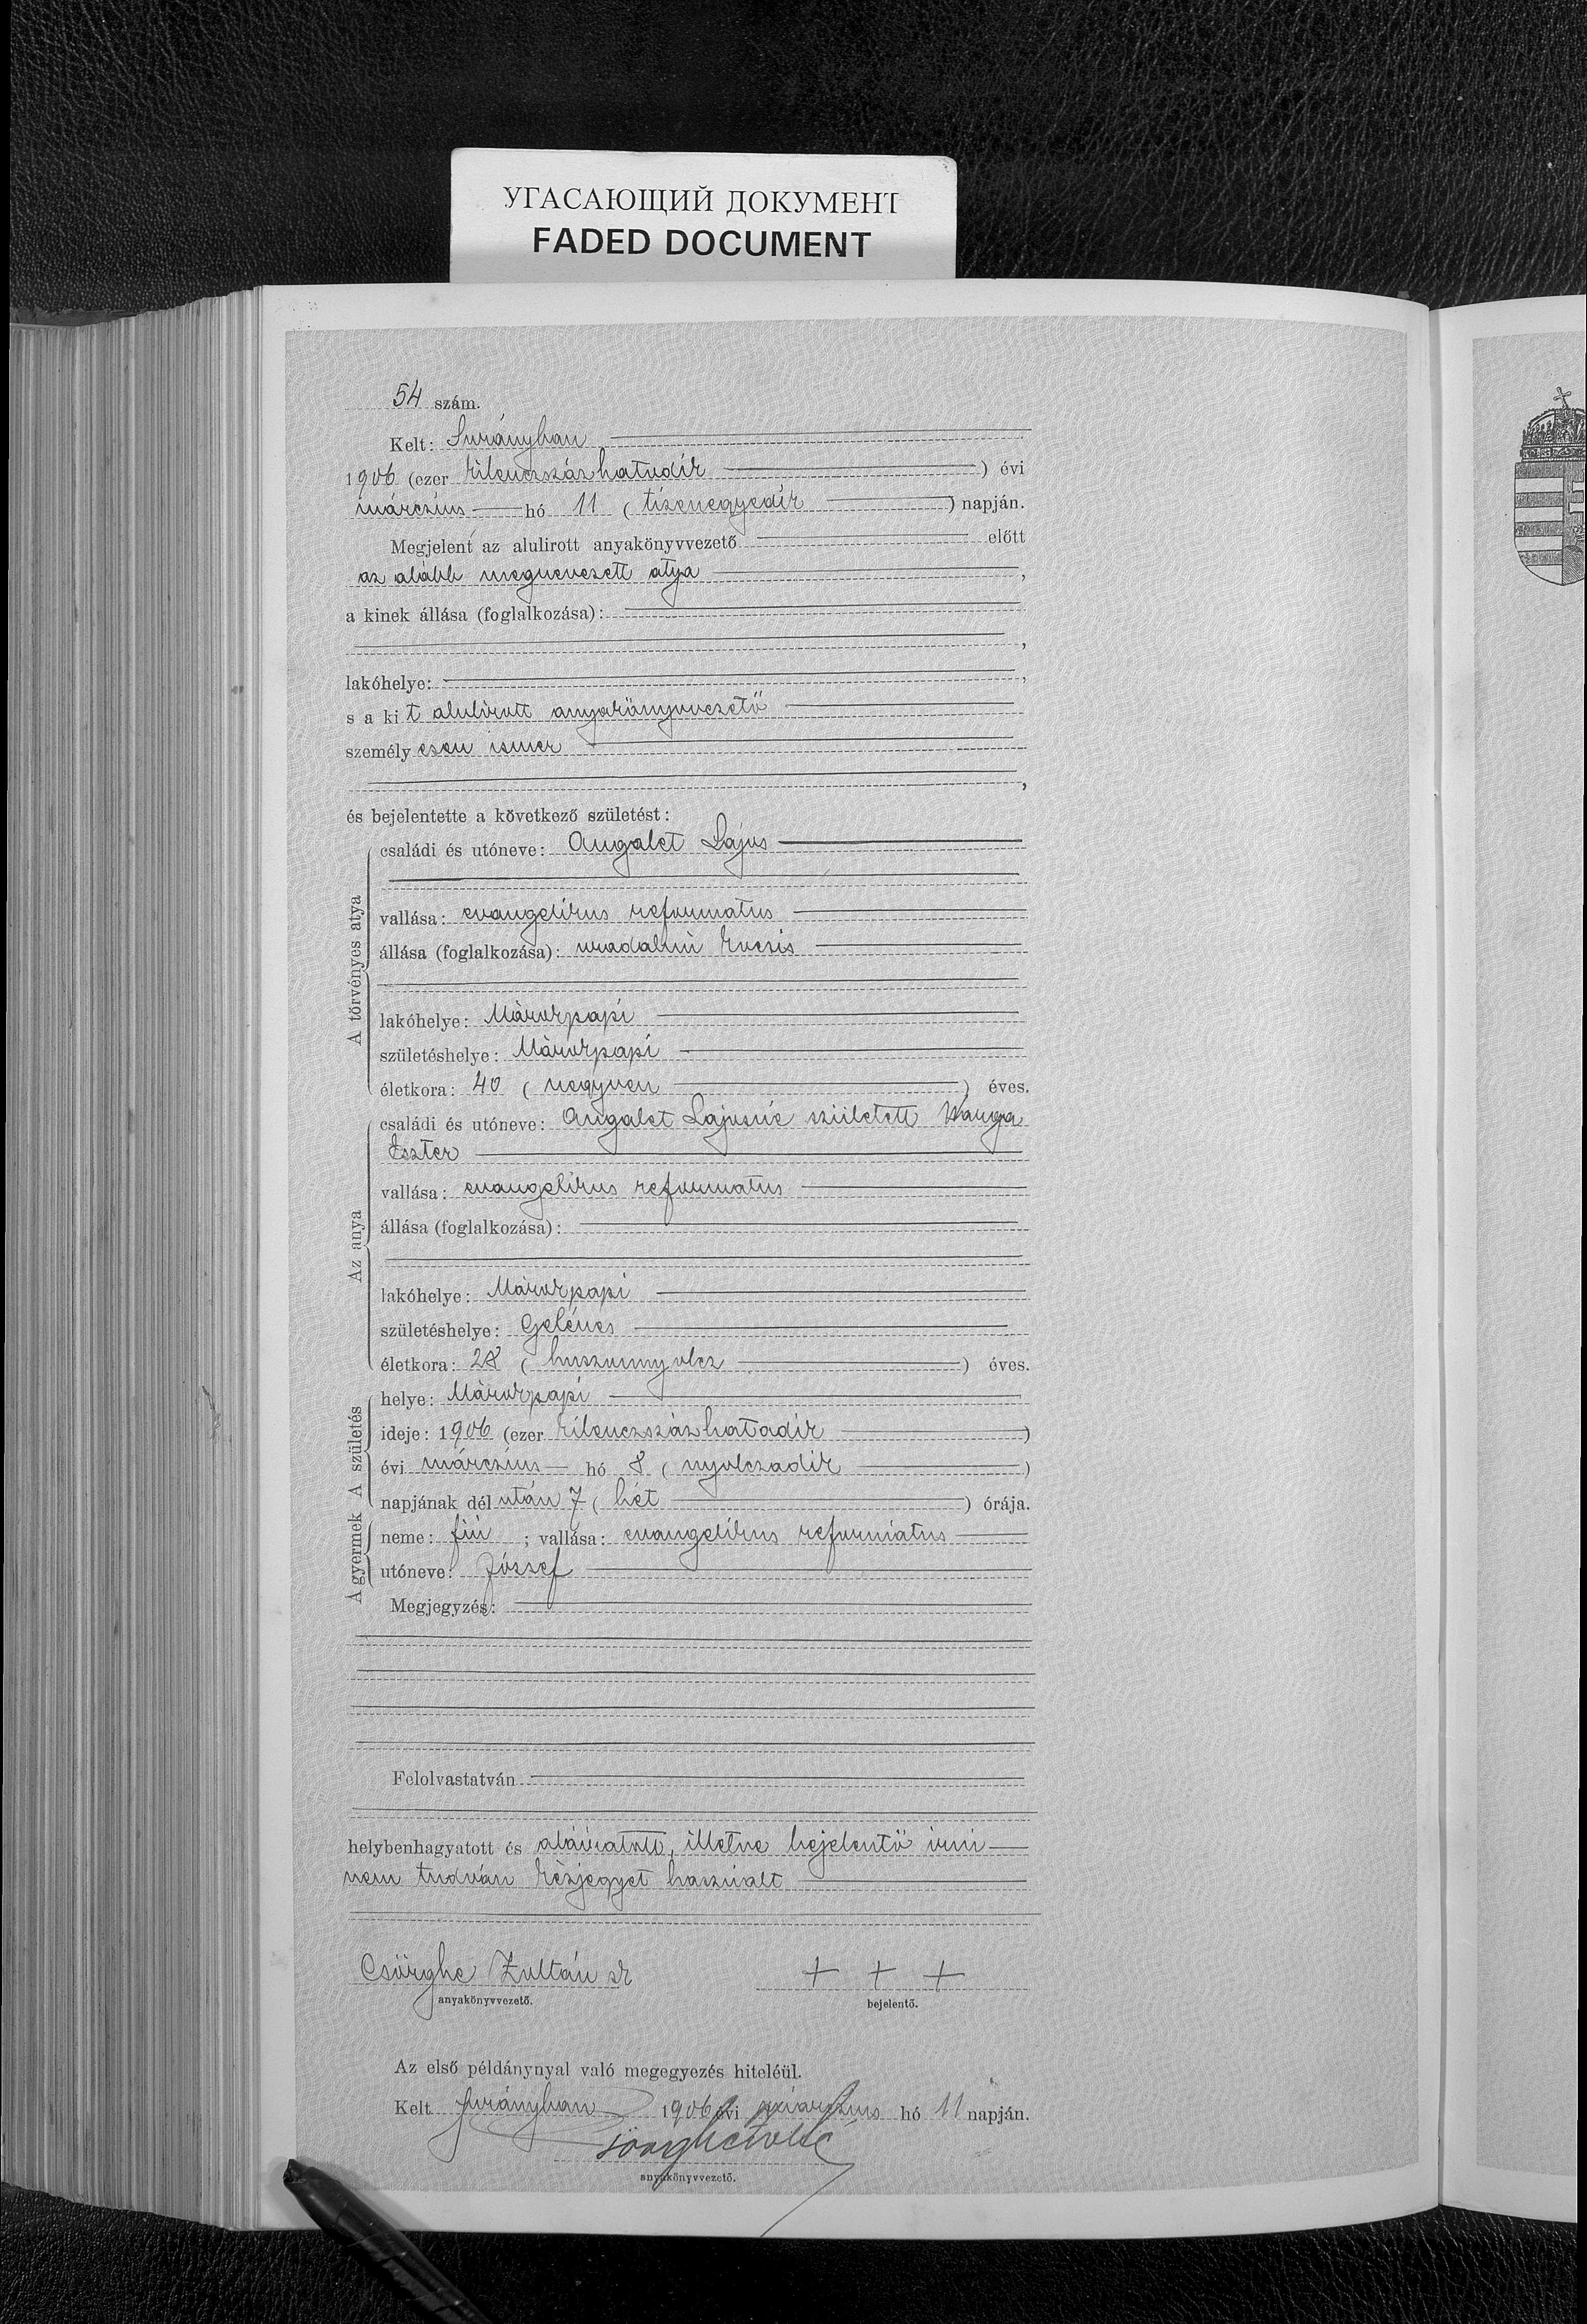 УГАСАЮЩИЙ ДОКУМЕНТ
FADED DOCUMENT
54 szám.
Kelt: Surányban
1906 (ezer kilenczszázhatodik) évi
márczius hó 11 (tizenegyedik) napján.
Megjelent az alulirott anyakönyvvezető előtt
az alább megnevezett atya,
a kinek állása (foglalkozása):
,
lakóhelye: ,
s a kit alulirott anyakönyvvezető
személyesen ismer
,
és bejelentette a következő születést:
A törvényes atya
családi és utóneve: Angalet Lajos
vallása: evangelikus reformatus
állása (foglalkozása): uradalmi kocsis
lakóhelye: Márokpapi
születéshelye: Márokpapi
életkora: 40 (negyven) éves.
Az anya
családi és utóneve: Angalet Lajosné született Varga
Eszter
vallása: evangelikus reformatus
állása (foglalkozása):
lakóhelye: Márokpapi
születéshelye: Gelénes
életkora: 28 (huszonnyolcz) éves.
A születés
helye: Márokpapi
ideje: 1906 (ezer kilenczszázhatadik)
évi márczius hó 8 (nyolczadik)
napjának dél után 7 (hét) órája.
A gyermek
neme: fiú ; vallása: evangelikus reformatus
utóneve: József
Megjegyzés:
Felolvastatván
helybenhagyatott és aláiratott, illetve bejelentő irni
nem tudván kézjegyet használt
Csörghe Zoltán sk
+ + +
anyakönyvvezető.
bejelentő.
Az első példánynyal való megegyezés hiteléül.
Kelt Surányban 1906 évi márczius hó 11 napján.
anyakönyvvezető.